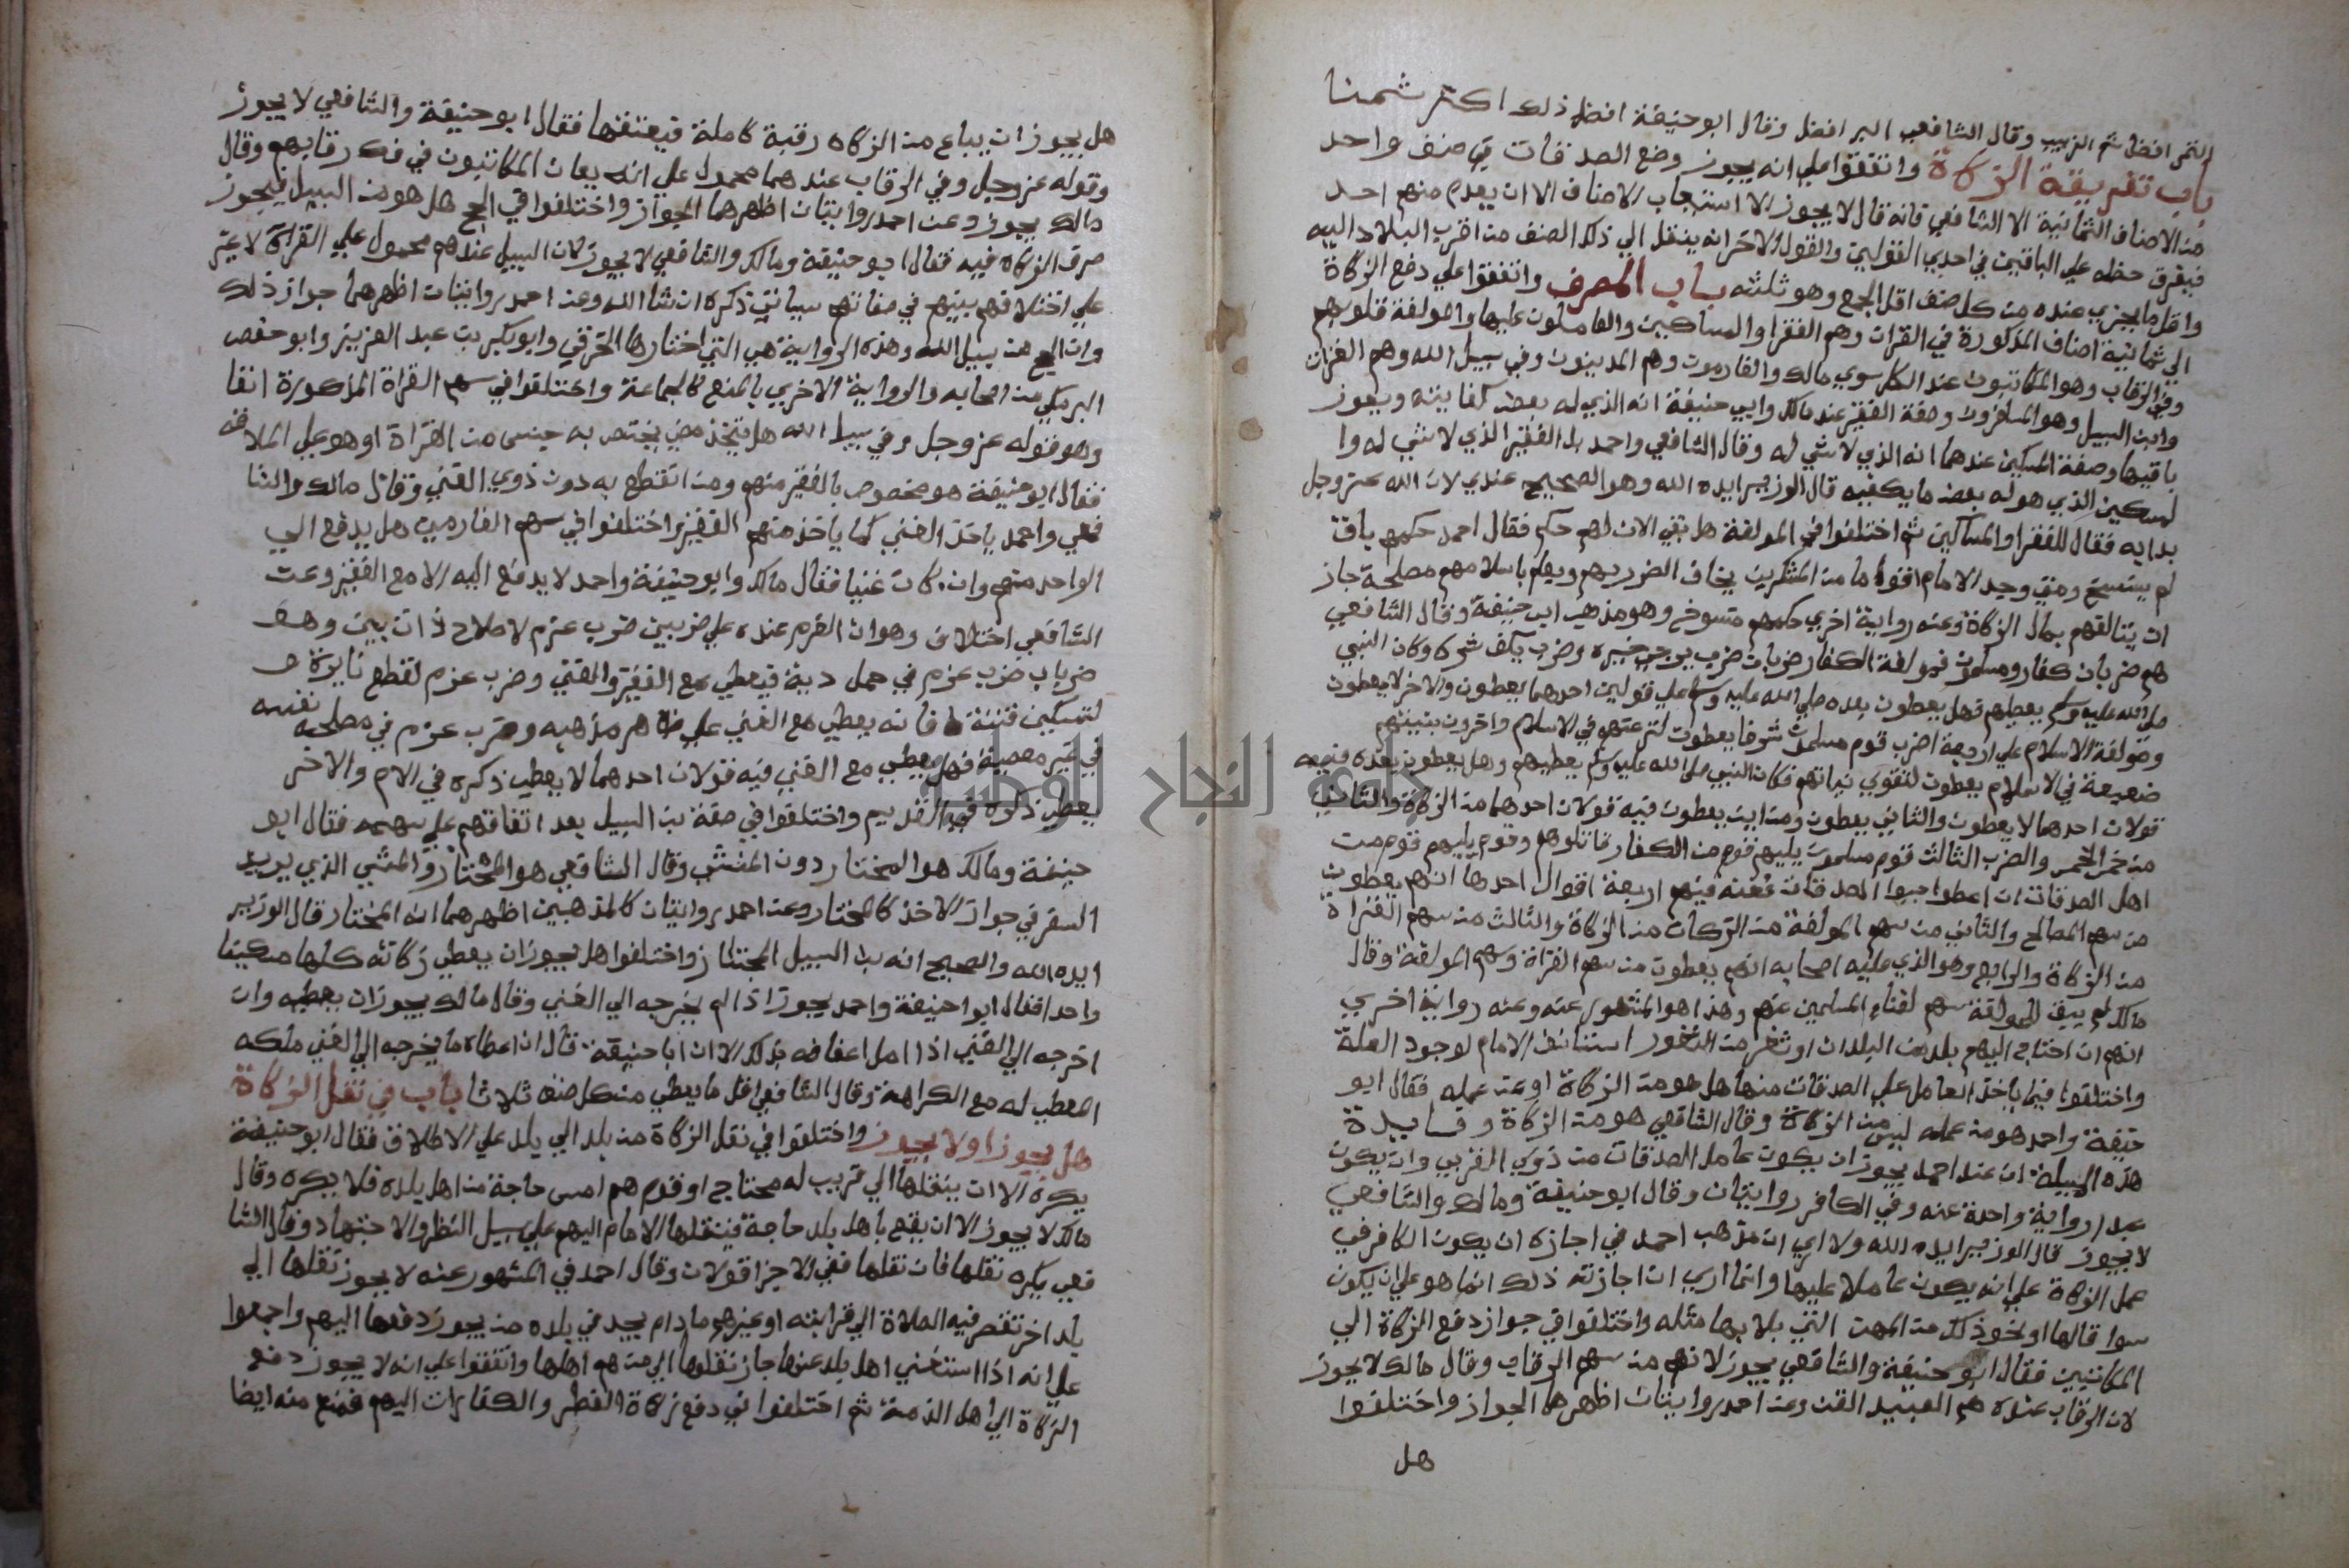 التمر افضل ثم الزبيب وقال الشافعي البر افضل وقال ابو حنيفة افضل ذلك اكثر ثمنا
باب تفريقة الزكاة واتفقوا علي انه يجوز وضع الصدقات في صنف واحد
من الاصناف الثمانية الا الشافعي فانه قال لا يجوز الا استيعاب الاصناف الا ان يعدم منهم احد
فيفرق حظه علي الباقين في احدي القولين والقول الاخر انه ينقل الي ذلك الصنف من اقرب البلاد اليه
واقل ما يجزي عنده من كل صنف اقل الجمع وهو ثلثه باب المصرف واتفقوا علي دفع الزكاة
الي ثمانية اصناف المذكورة في القران وهم الفقرا والمساكين والعاملون عليها والمولفة قلوبهم
وفي الرقاب وهو المكاتبون عند الكل سوي مالك والغارمون وهم المدينون وفي سبيل الله وهم الغزاة
وابن السبيل وهو المسافرون وصفة الفقير عند مالك وابي حنيفة انه الذي له بعض كفايته ويعوز
باقيها وصفة المسكين عندهما انه الذي لا شي له وقال الشافعي واحمد بل الفقير الذي لا شي له وا
لمسكين الذي هو له بعض ما يكفيه قال الوزير ايده الله وهو الصحيح عندي لان الله عز وجل
بدا به فقال للفقرا والمساكين ثم اختلفوا في المولفة هل بقي الان لهم حكم فقال احمد حكمهم باق
لم ينسخ ومتي وجد الامام قوما من المشركين يخاف الضرر بهم ويعلم باسلامهم مصلحة جاز
ان يتالفهم بمال الزكاة وعنه رواية اخري حكمهم منسوخ وهو مذهب ابي حنيفة وقال الشافعي
هم ضربان كفار ومسلمون فمولفة الكفار ضربان ضرب يرجي خيره وضرب يكف شره وكان النبي
صلي الله عليه وسلم يعطيهم فهل يعطون بعده صلي الله عليه وسلم علي قولين احدهما يعطون والاخر لا يعطون
ومولفة الاسلام علي اربعة اضرب قوم مسلمون شرفا يعطون لترغيبهم في الاسلام واخرون بنيتهم
ضعيفة في الاسلام يعطون لتقوي نياتهم فكان النبي صلي الله عليه وسلم يعطيهم وهل يعطون بعده فيه
قولان احدهما لا يعطون والثاني يعطون ومن اين يعطون فيه قولان احدهما من الزكاة والثاني
من خمس الخمس والضرب الثالث قوم مسلمون يليهم قوم من الكفار قاتلوهم وقوم يليهم قوم من
اهل الصدقات ان اعطوا جبوا الصدقات فعنه فيهم اربعة اقوال احدها انهم يعطون
من سهم المصالح والثاني من سهم المولفة من الزكاة والثالث من سهم الغزاة
من الزكاة والرابع وهو الذي عليه اصحابه انهم يعطون من سهم الغزاة وسهم المولفة وقال
مالك لم يبق للمولفة سهم لغناء المسلمين عنهم وهذا هو المشهور عنه وعنه رواية اخري
انهم ان احتاج اليهم بلد من البلدان او ثغر من الثغور استانف الامام لوجود العلة
واختلفوا فيما ياخذ العامل علي الصدقات منها هل هو من الزكاة او عن عمله فقال ابو
حنيفة واحمد هو من عمله ليس من الزكاة وقال الشافعي هو من الزكاة وفايدة
هذه المسيلة ان عند احمد يجوز ان يكون عامل الصدقات من ذوي القربي وان يكون
عبدا رواية واحدة عنه وفي الكافر روايتان وقال ابو حنيفة ومالك والشافعي
لا يجوز قال الوزير ايده الله ولا اري ان مذهب احمد في اجازه ان يكون الكافر في
عمل الزكاة علي انه يكون عاملا عليها وانما اري ان اجازته ذلك انما هو علي ان يكون
سواقا لها او نحو ذلك من المهن التي يلابسها مثله واختلفوا في جواز دفع الزكاة الي
المكاتبين فقال ابو حنيفة والشافعي يجوز لانهم من سهم الرقاب وقال مالك لا يجوز
لان الرقاب عنده هم العبيد القن وعن احمد روايتان اظهرهما الجواز واختلفوا
هل
هل يجوز ان يبتاع من الزكاه رقبة كاملة فيعتقها فقال ابو حنيفة والشافعي لا يجوز
وقوله عز وجل وفي الرقاب عندهما محمول علي انه يعان المكاتبون في فك رقابهم وقال
مالك يجوز وعن احمد روايتان اظهرهما الجواز واختلفوا في الحج هل هو من السبيل فيجوز
صرف الزكاه فيه فقال ابو حنيفة ومالك والشافعي لا يجوز لان السبيل عندهم محمول علي الغزاة لا غير
علي اختلافهم بينهم في صفاتهم سياتي ذكره ان شا الله وعن احمد روايتان اظهرهما جواز ذلك
وان الحج من سبيل الله وهذه الرواية هي التي اختارها الخرقي وابو بكر بن عبد العزيز وابو حفص
البرمكي من اصحابه والرواية الاخري بالمنع كالجماعة واختلفوا في سهم الغزاة المذكورة انفا
وهو قوله عز وجل وفي سبيل الله هل يختص به جنس من الغزاة او هو علي اطلاقه
فقال ابو حنيفة هو مخصوص بالفقير منهم ومن انقطع به دون ذوي الغني وقال مالك والشا
فعي واحمد ياخذ الغني كما ياخذ منهم الفقير واختلفوا في سهم الغارمين هل يدفع الي
الواحد منهم وان كان غنيا فقال مالك وابو حنيفة واحمد لا يدفع اليه الا مع الفقير وعن
الشافعي اختلاف وهو ان الغرم عنده علي ضربين ضرب غرم لاصلاح ذات بين وهو
ضربان ضرب غرم في حمل دية فيعطي مع الفقير والغني وضرب غرم لقطع نايرة و
لتسكين فتنة فانه يعطي مع الغني علي ظاهر مذهبه وضرب غرم في مصلحة نفسه
في غير معصية فهل يعطي مع الغني فيه قولان احدهما لا يعطي ذكره في الام والاخر
يعطي ذكره في القديم واختلفوا في صفة بن السبيل بعد اتفاقهم علي سهمه فقال ابو
حنيفة ومالك هو المختار دون المنشي وقال الشافعي هو المختار والمنشي الذي يريد
السفر في جواز الاخذ كالمختار وعن احمد روايتان كالمذهبين اظهرهما انه المختار قال الوزير
ايده الله والصحيح انه بن السبيل المجتاز واختلفوا هل يجوز ان يعطي زكاته كلها مسكينا
واحدا فقال ابو حنيفة واحمد يجوز اذا لم يخرجه الي الغني وقال مالك يجوز ان يعطيه وان
اخرجه الي الغني اذا امل اعفافه بذلك الا ان ابا حنيفة قال ان اعطاه ما يخرجه الي الغني ملكه
المعطي له مع الكراهة وقال الشافعي اقل ما يعطي من كل صنف ثلاثا باب في نقل الزكاة
هل يجوز او لا يجوز واختلفوا في نقل الزكاة من بلد الي بلد علي الاطلاق فقال ابو حنيفة
يكره الا ان ينقلها الي قريب له محتاج او قوم هم امس حاجة من اهل بلده فلا يكره وقال
مالك لا يجوز الا ان يقع باهل بلد حاجة فينقلها الامام اليهم علي سبيل النظر والاجتهاد وقال الشا
فعي يكره نقلها فان نقلها ففي الاجزا قولان وقال احمد في المشهور عنه لا يجوز نقلها الي
بلد اخر تقصر فيه الصلاة الي قرابته او غيرهم ما دام يجد في بلده من يجوز دفعها اليهم واجمعوا
علي انه اذا استغني اهل بلد عنها جاز نقلها الي من هم اهلها واتفقوا علي انه لا يجوز دفع
الزكاة الي اهل الذمة ثم اختلفوا في دفع زكاة الفطر والكفارات اليهم فمنع منه ايضا